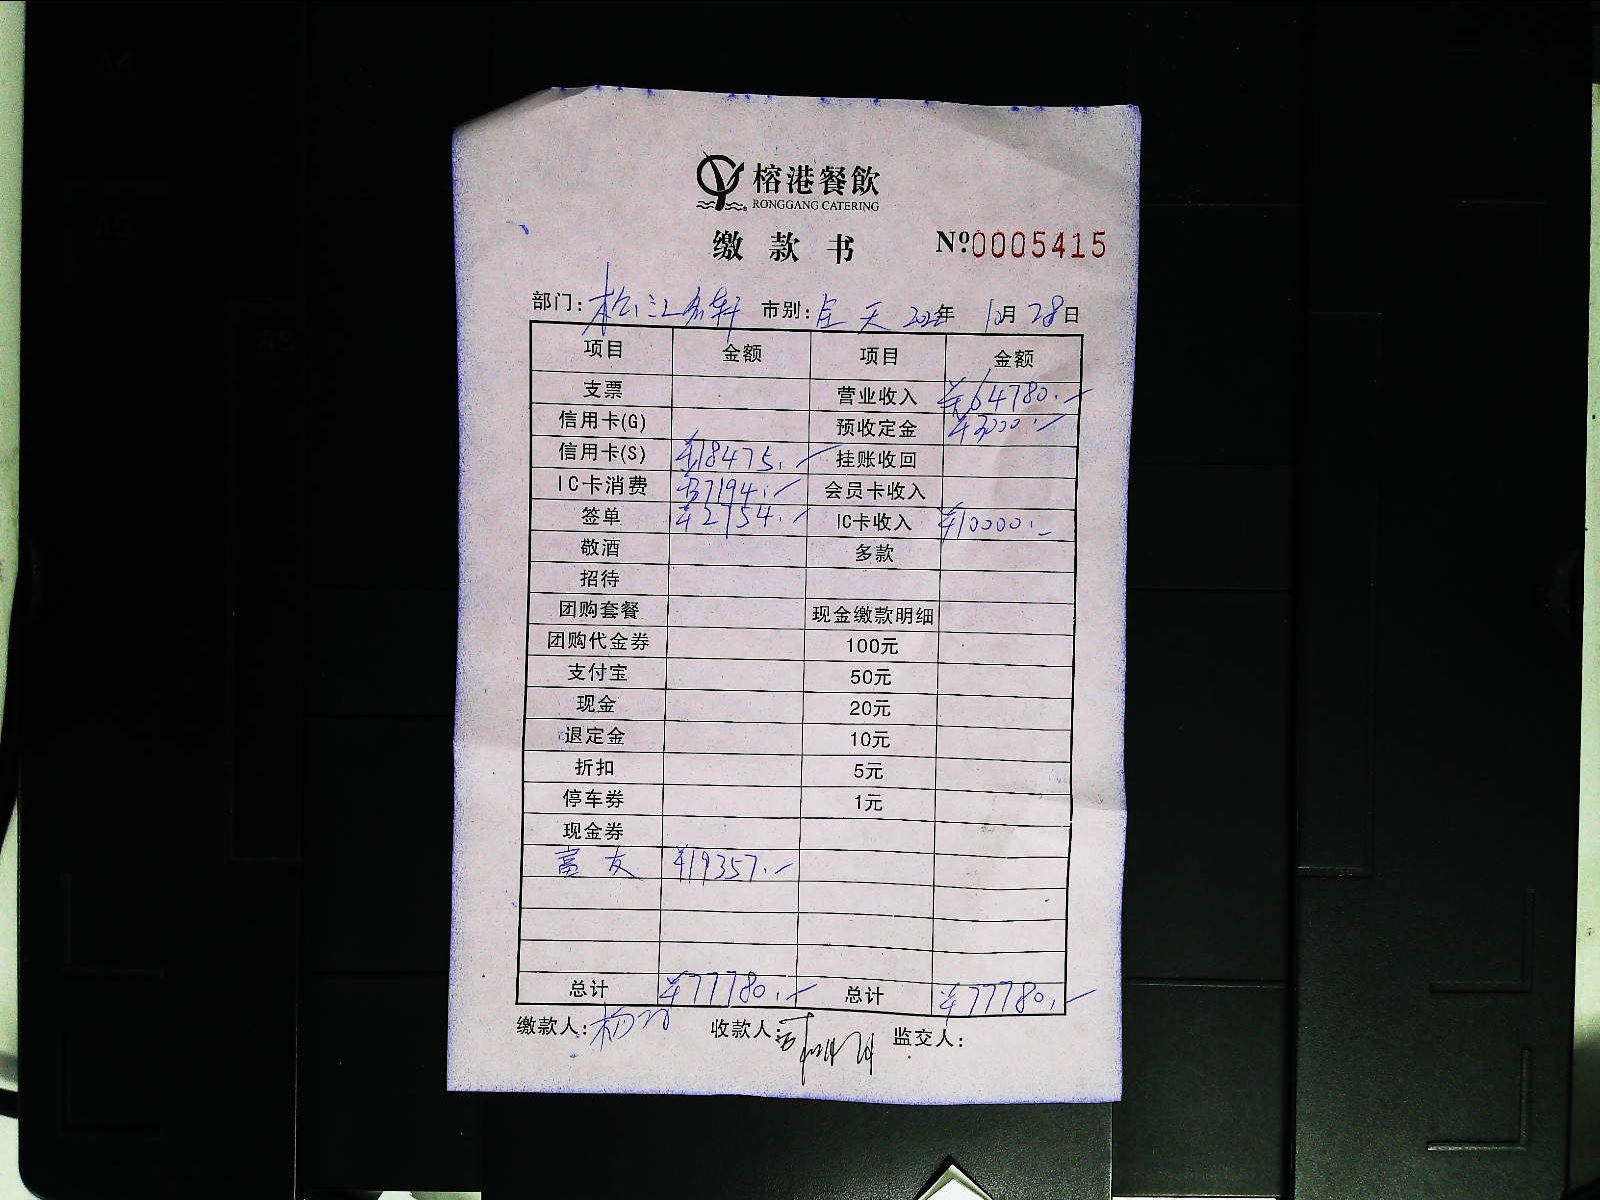 榕港餐飲
RONGGANG CATERING
缴款书 №0005415
部门：松江 轩 市别：全天 年 10月28日
项目 金额 项目 金额
支票 营业收入 ¥64780.-
信用卡(G) 预收定金 ¥3000.-
信用卡(S) ¥18475.- 挂账收回
IC卡消费 ¥37194.- 会员卡收入
签单 ¥2754.- IC卡收入 ¥10000.-
敬酒 多款
招待
团购套餐 现金缴款明细
团购代金券 100元
支付宝 50元
现金 20元
退定金 10元
折扣 5元
停车券 1元
现金券
富友 ¥19357.-
总计 ¥77780.- 总计 ¥77780.-
缴款人：杨 收款人： 监交人：